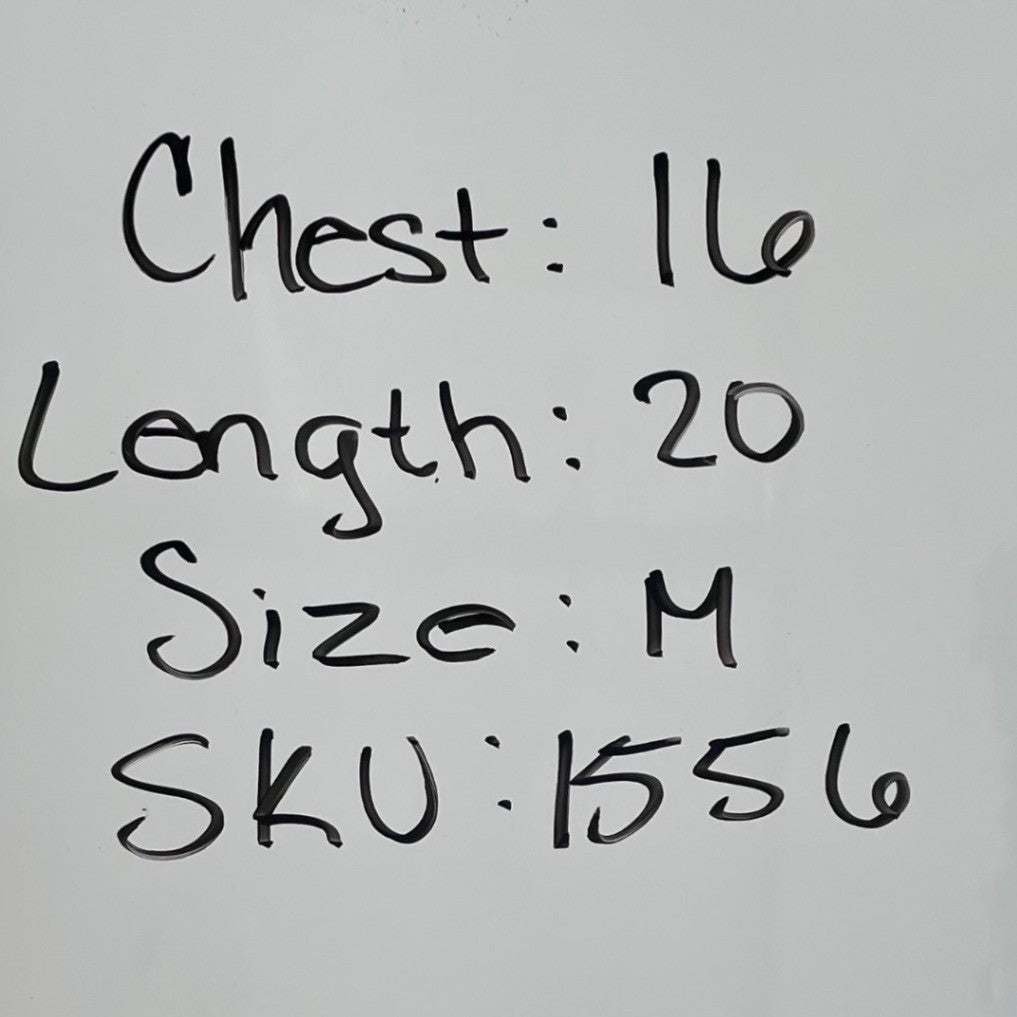 Chest: 16
Length: 20
Size: M
SKU: 1556